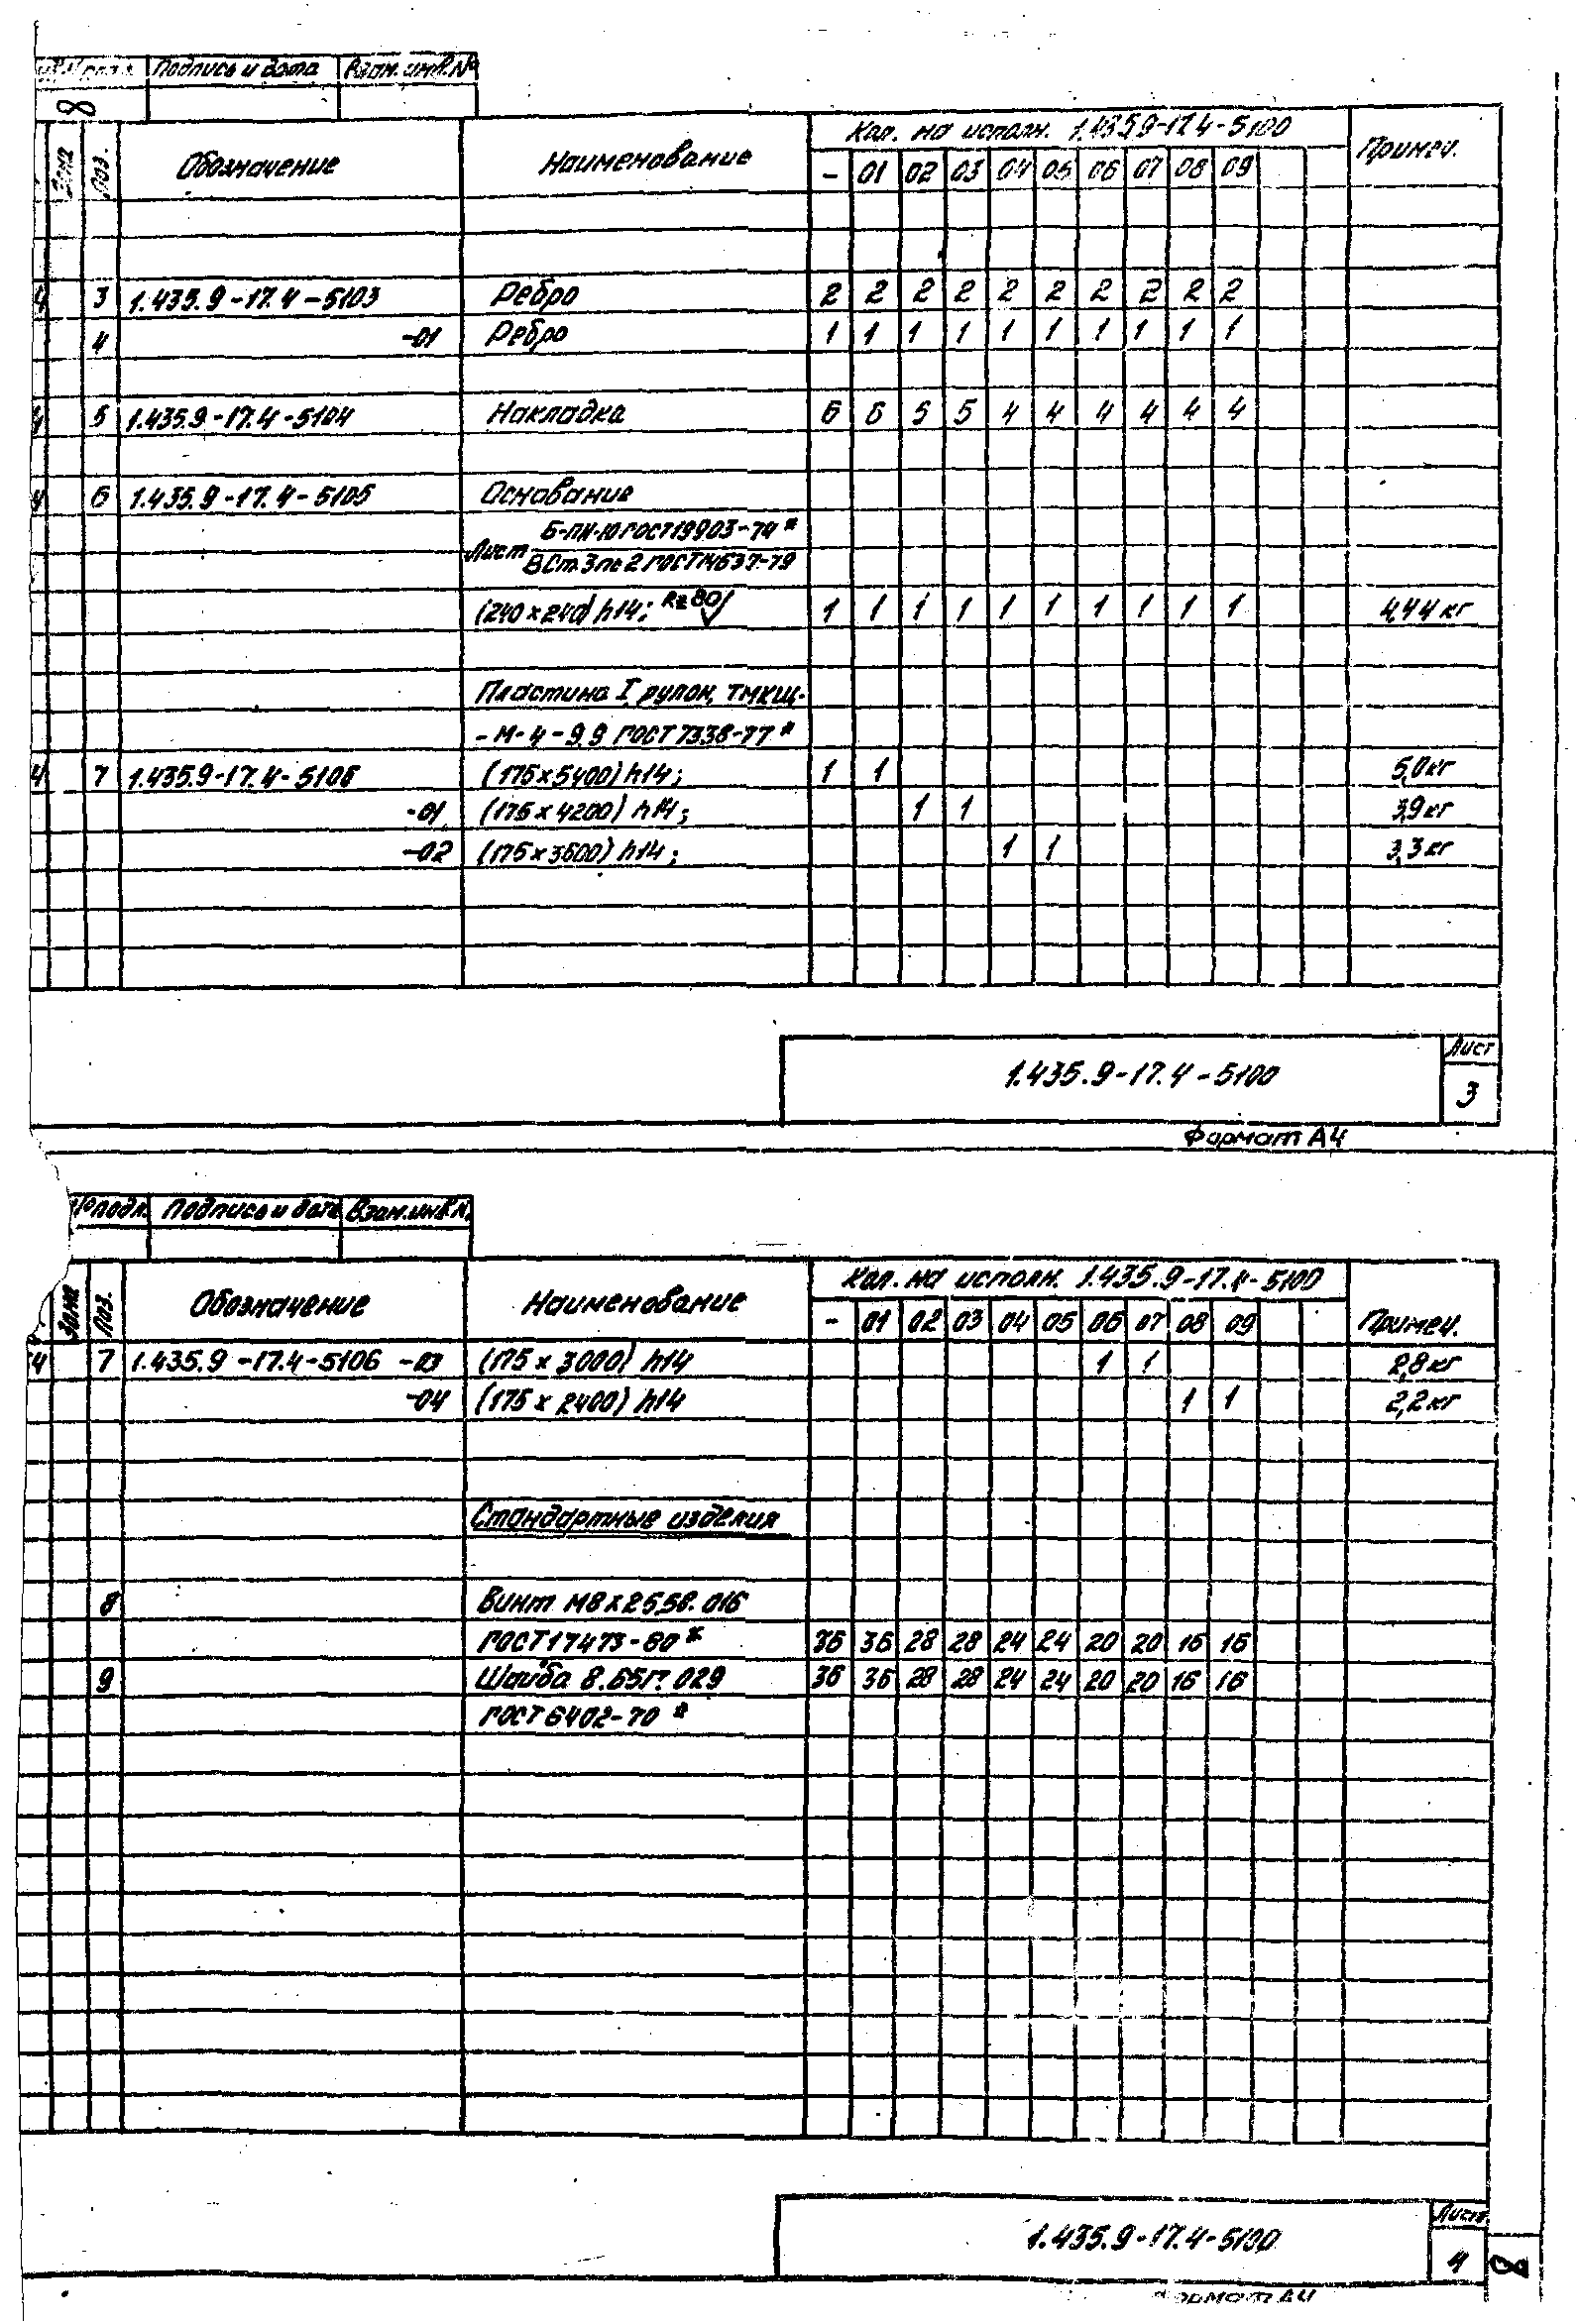 Подпись и дата Взам. инв. №
8
Зона Поз. Обозначение Наименование Кол. на исполн. 1.435.9-17.4-5100 Примеч.
- 01 02 03 04 05 06 07 08 09
4 3 1.435.9-17.4-5103 Ребро 2 2 2 2 2 2 2 2 2 2
4 -01 Ребро 1 1 1 1 1 1 1 1 1 1
4 5 1.435.9-17.4-5104 Накладка 6 6 5 5 4 4 4 4 4 4
4 6 1.435.9-17.4-5105 Основание
Б-ПН-10 ГОСТ 19903-74*
Лист
ВСт.3пс2 ГОСТ 14637-79
(240×240) h14; Rz80 1 1 1 1 1 1 1 1 1 1 4,44 кг
Пластина I, рулон, ТМКЩ-
-М-4-9.9 ГОСТ 7338-77*
4 7 1.435.9-17.4-5106 (175×5400) h14; 1 1 5,0 кг
-01 (175×4200) h14; 1 1 3,9 кг
-02 (175×3600) h14; 1 1 3,3 кг
1.435.9-17.4-5100
Лист
3
Формат А4
№ подл. Подпись и дата Взам. инв. №
Зона Поз. Обозначение Наименование Кол. на исполн. 1.435.9-17.4-5100 Примеч.
- 01 02 03 04 05 06 07 08 09
4 7 1.435.9-17.4-5106 -03 (175×3000) h14 1 1 2,8 кг
-04 (175×2400) h14 1 1 2,2 кг
Стандартные изделия
8 Винт М8×25.58.016
ГОСТ 17473-80* 36 36 28 28 24 24 20 20 16 16
9 Шайба 8.65Г.029 36 36 28 28 24 24 20 20 16 16
ГОСТ 6402-70*
1.435.9-17.4-5100
Лист
4
8
Формат А4